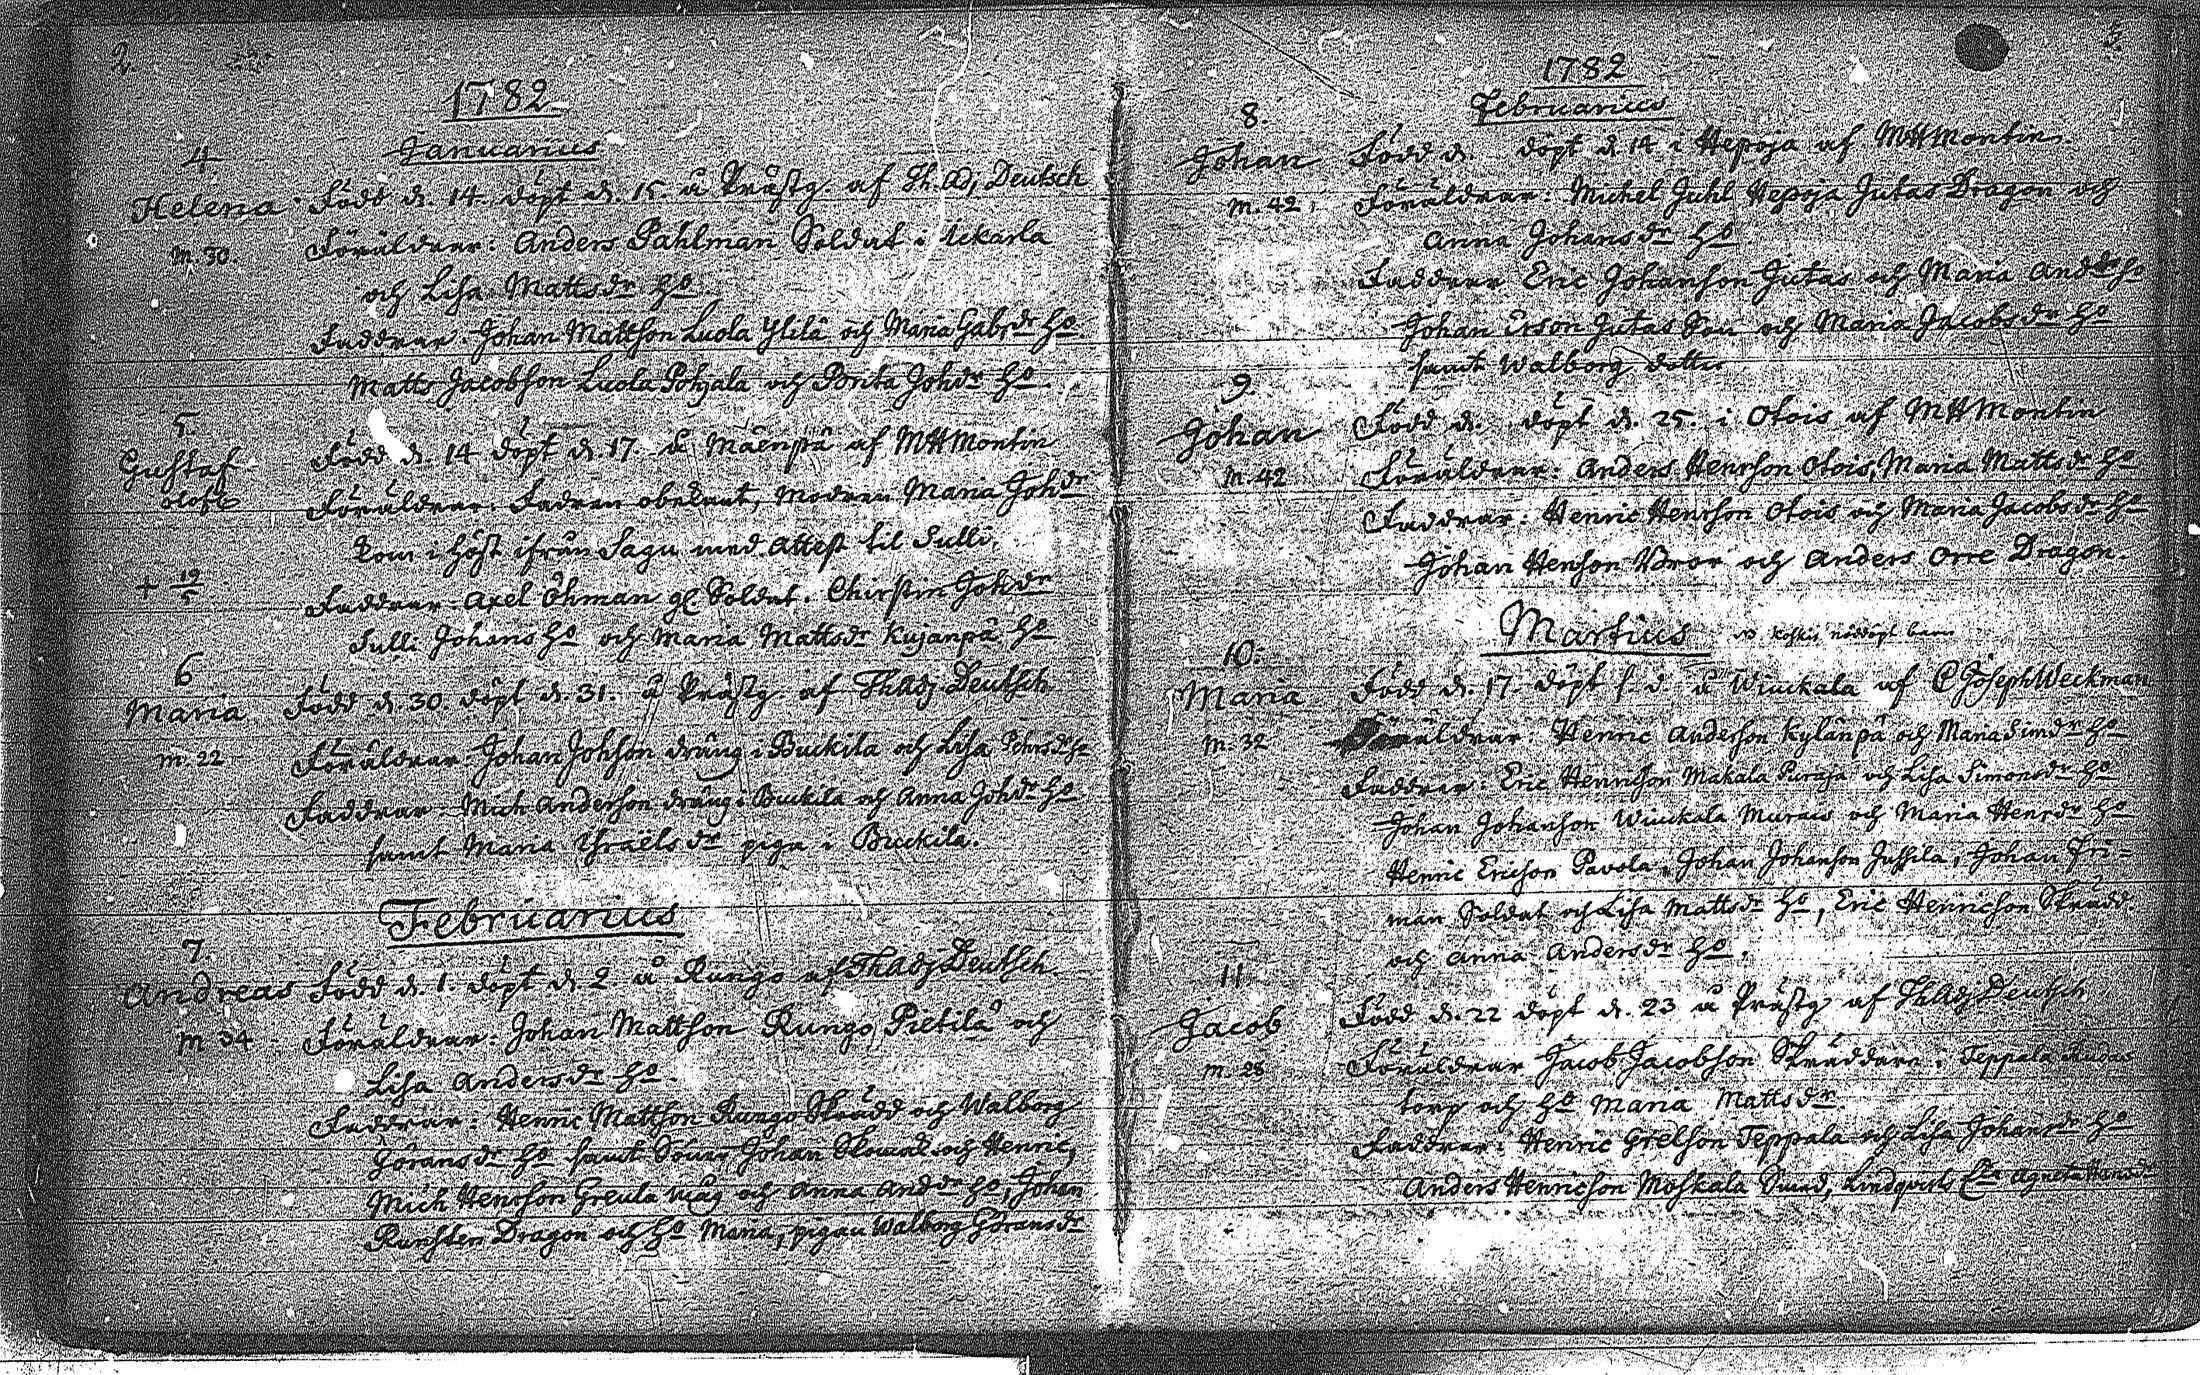 2.
1782
Januarius
4.
Helena Född d. 14. döpt d. 15. å Prästg. af Th. Adj. Deutsch
m. 30. Föräldrar: Anders Pahlman Soldat i Uckarla
och Lisa Mattsdr ho
Faddrar. Johan Mattson Luola Ylilä och Maria Gabrdr ho.
Matts Jacobson Luola Pohjala och Brita Johdr ho.
5.
Gustaf Född d. 14 döpt d. 17. å Mäenpä af MHMontin
oloft Föräldrar: Fadren obekant, modren Maria Johdr
kom i höst ifrån Sagu med attest til Sulli.
+ 19/5 Faddrar. Axel Öhman gl Soldat. Chirstin Johdr
Sulli Johans ho och Maria Mattsdr Kujanpä ho
6
Maria Född d. 30 döpt d. 31. å Prästg. af ThAdj Deutsch
m. 22 Föräldrar. Johan Johson dräng i Buckila och Lisa
Faddrar. Mich Anderson dräng i Buckila och Anna Johdr ho
samt Maria Israëlsdr piga i Buckila.
Februarius
7.
Andreas Född d. 1. döpt d. 2 å Rungo af ThAdj Deutsch.
m 34 Föräldrar: Johan Mattson Rungo Pietilä och
Lisa Andersdr ho.
Faddrar: Henric Mattson Rungo Skrädd och Walborg
Göransdr ho samt Johan och Henric,
Mich Henrson Greula måg och Anna Anddr ho, Johan
Runsten Dragon och ho Maria, pigan Walborg Göransdr
3.
1782
Februarius
8.
Johan Född d. döpt d. 14 i Hepoja af MHMontin.
m. 42. Föräldrar: Michel Juhl Hepoja Jutas Dragon och
Anna Johansdr ho
Faddrar Eric Johanson Jutas och Maria Anddr ho
Johan Erson Jutas Son och Maria Jacobsdr ho
samt Walborg dotter
9.
Johan Född d. döpt d. 25. i Otois af MHMontin
m. 42 Föräldrar: Anders Henrson Otois, Maria Mattsdr ho
Faddrar: Henric Henrson Otois och Maria Jacobsdr ho
Johan Henrson Bror och Anders Orre Dragon.
Martius nöddöpt barn
10.
Maria Född d. 17. döpt s. d. å Wiuckala af C Joseph Weckman
m. 32 Föräldrar: Henric Anderson Kylänpä och Maria Simdr ho
Faddrar: Eric Henricson Makala Puraja och Lisa Simonsdr ho
Johan Johanson Wiuckala Murais och Maria Henrdr ho
Henric Ericson Pavola, Johan Johanson Jussila, Johan Fri=
man Soldat och Lisa Mattsdr ho, Eric Henricson Skrädd.
och Anna Andersdr ho.
11
Jacob Född d. 22 döpt d. 23 å Prästg af ThAdj Deutsch
m. 28 Föräldrar Jacob Jacobson Skräddare i Teppala
torp och ho Maria Mattsdr.
Faddrar: Henric Grelson Teppala och Lisa Johansdr ho
Anders Henricson Moskala Smed, Lindqvists Agneta Hansdr